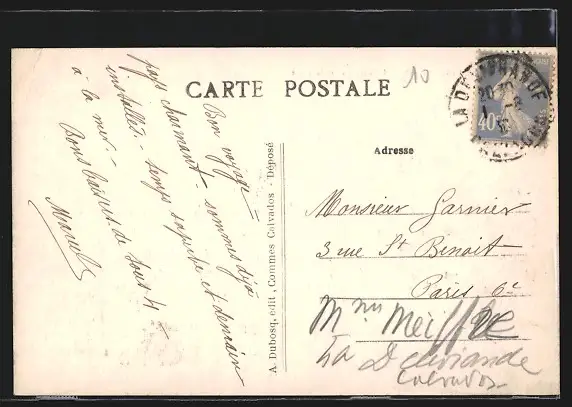 CARTE POSTALE
10
Bon voyage
pays charmant - sommes déjà
installés - temps superbe et demain
à la mer -
Bons baisers de tous 4
Marcelle
A. Dubosq, édit, Commes Calvados - Déposé
Adresse
Monsieur Garnier
3 rue St Benoit
Paris 6e
Mme Meiffre
La Délivrande
Calvados
LA DELIVRANDE
20
40c